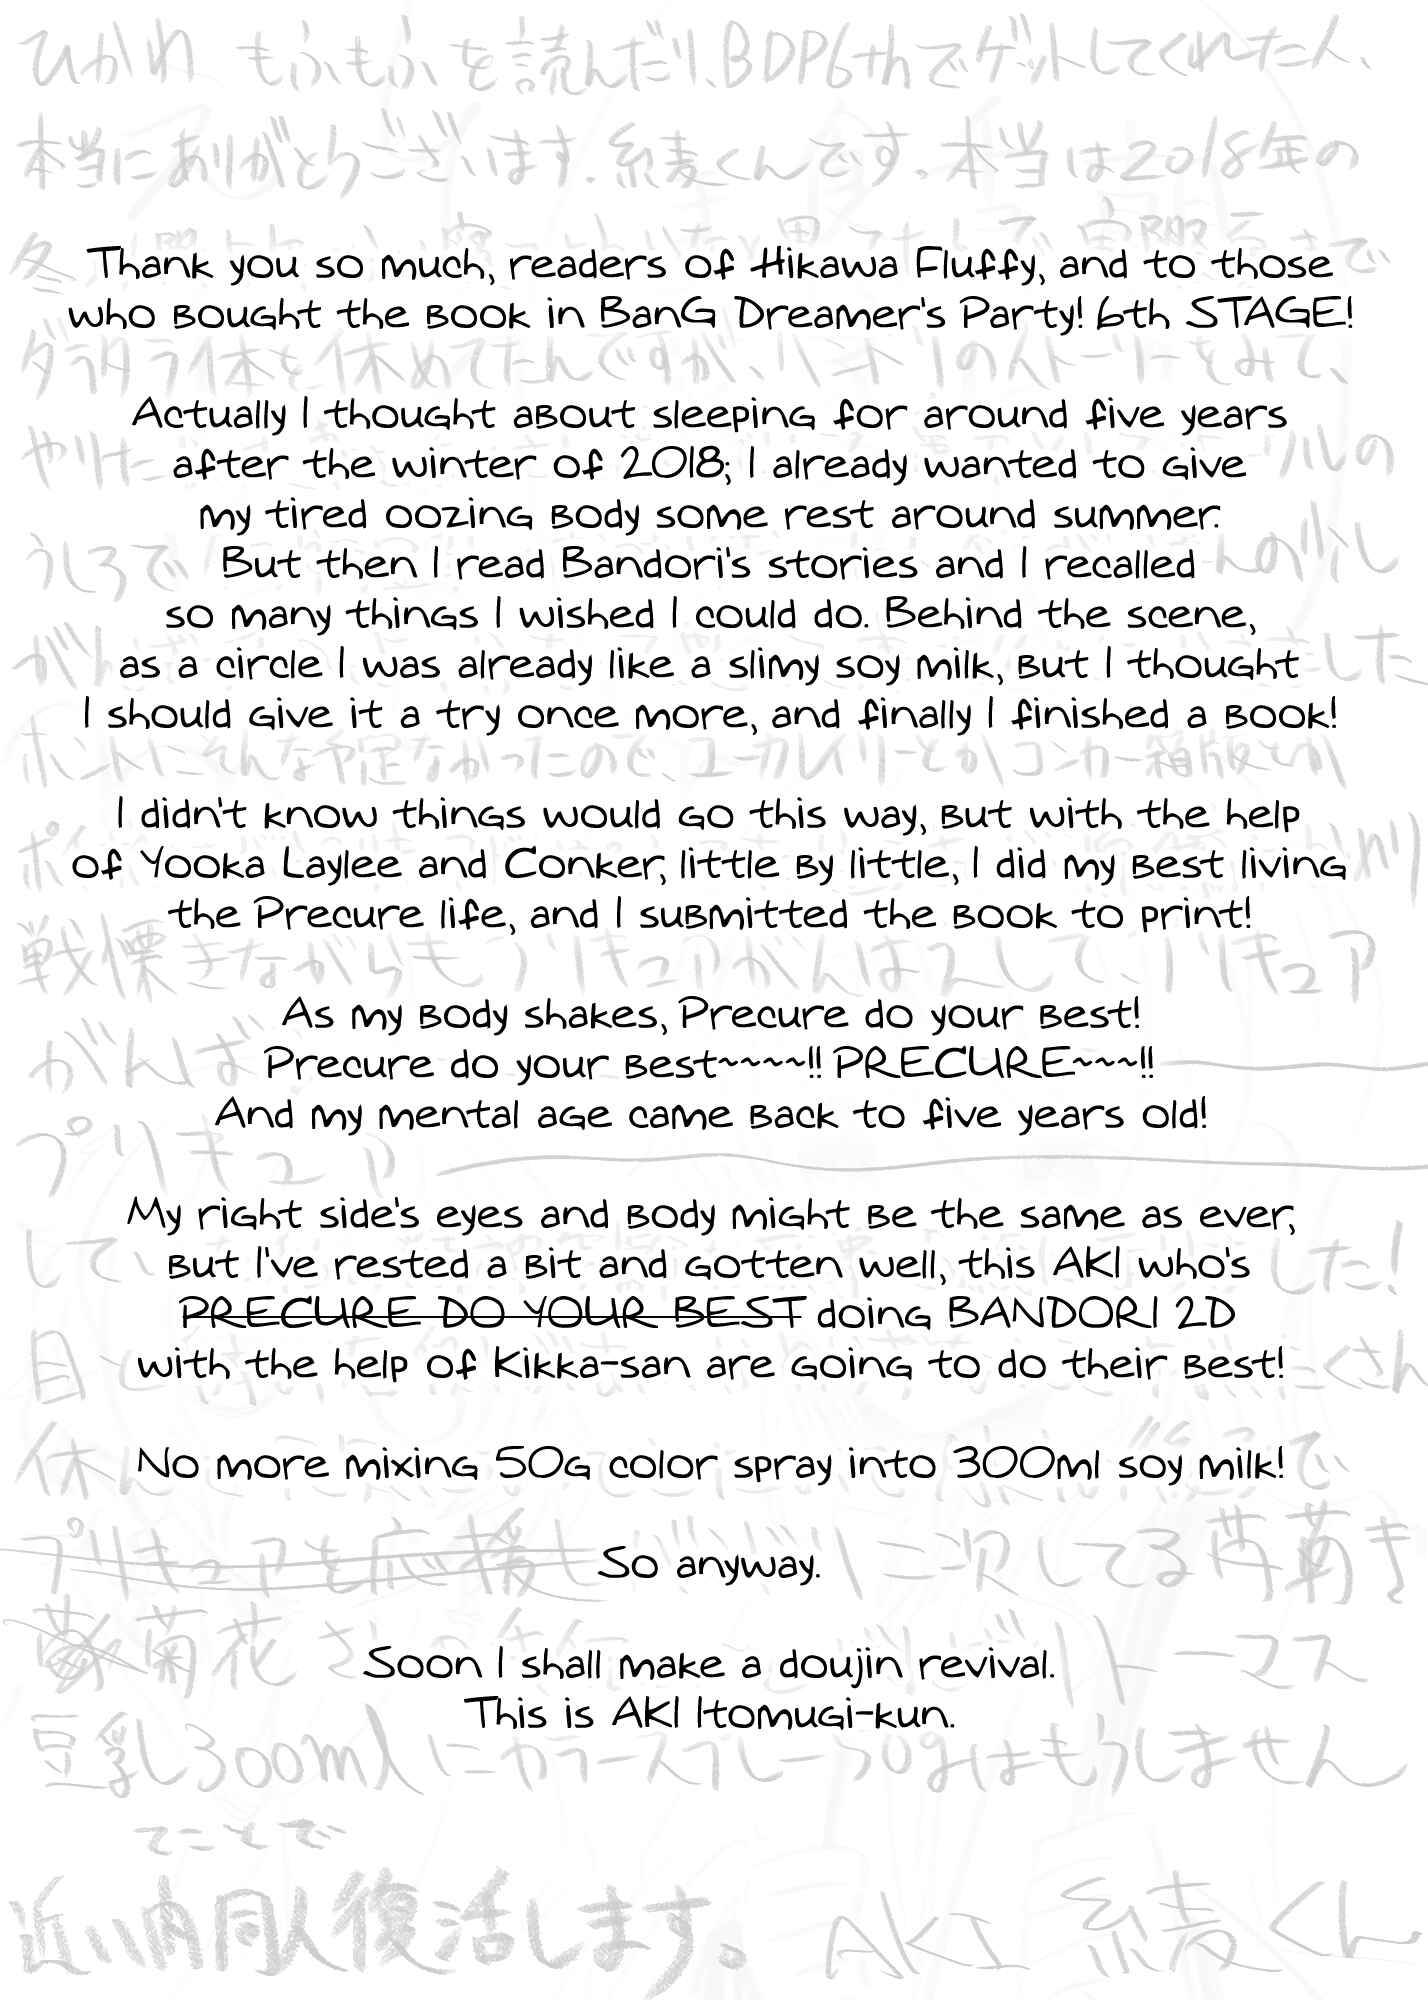 ひかわ もふもふを読んだり、BDP6thでゲットしてくれた人、
本当にありがとうございます。糸麦くんです。本当は2018年の
冬
Thank you so much, readers of Hikawa Fluffy, and to those
who bought the book in BanG Dreamer's Party! 6th STAGE!
ダラダラ体を休めてたんですが、バンドリのストーリーをみて、
Actually I thought about sleeping for around five years
やりた
リルの
after the winter of 2018; I already wanted to give
my tired oozing body some rest around summer.
うしろで
んの少し
But then I read Bandori's stories and I recalled
so many things I wished I could do. Behind the scene,
as a circle I was already like a slimy soy milk, but I thought
した
I should give it a try once more, and finally I finished a book!
ホントにそんな予定なかったので、ユーカレイリーとかコンカー箱版とか
I didn't know things would go this way, but with the help
of Yooka Laylee and Conker, little by little, I did my best living
the Precure life, and I submitted the book to print!
戦慄きながらもプリキュアがんばえして、プリキュア
As my body shakes, Precure do your best!
がんば
Precure do your best~~~~!! PRECURE~~~!!
And my mental age came back to five years old!
プリキュア
My right side's eyes and body might be the same as ever,
して、
した!
but I've rested a bit and gotten well, this AKI who's
PRECURE DO YOUR BEST doing BANDORI 2D
目
くさん
with the help of Kikka-san are going to do their best!
休ん
で
No more mixing 50g color spray into 300ml soy milk!
プリキュアを応援し
二次してる
So anyway.
菊花さ
トーマス
Soon I shall make a doujin revival.
This is AKI Itomugi-kun.
豆乳300mlにカラースプレー50gはもうしません
てことで
近い内同人復活します。 AKI 糸麦くん